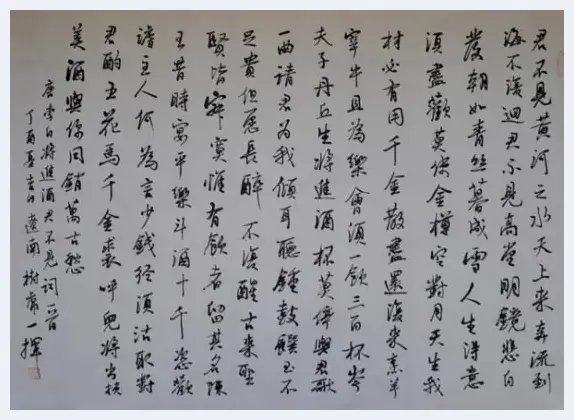 君不見黃河之水天上來奔流到
海不復迴君不見高堂明鏡悲白
發朝如青絲暮成雪人生得意
須盡歡莫使金樽空對月天生我
材必有用千金散盡還復來烹羊
宰牛且為樂會須一飲三百杯岑
夫子丹丘生將進酒杯莫停與君歌
一曲請君為我傾耳聽鐘鼓饌玉不
足貴但願長醉不復醒古來聖
賢皆寂寞惟有飲者留其名陳
王昔時宴平樂斗酒十千恣歡
謔主人何為言少錢徑須沽取對
君酌五花馬千金裘呼兒將出換
美酒與你同銷萬古愁
唐李白將進酒君不見詞一首
丁酉年吉月遼南樹一揮